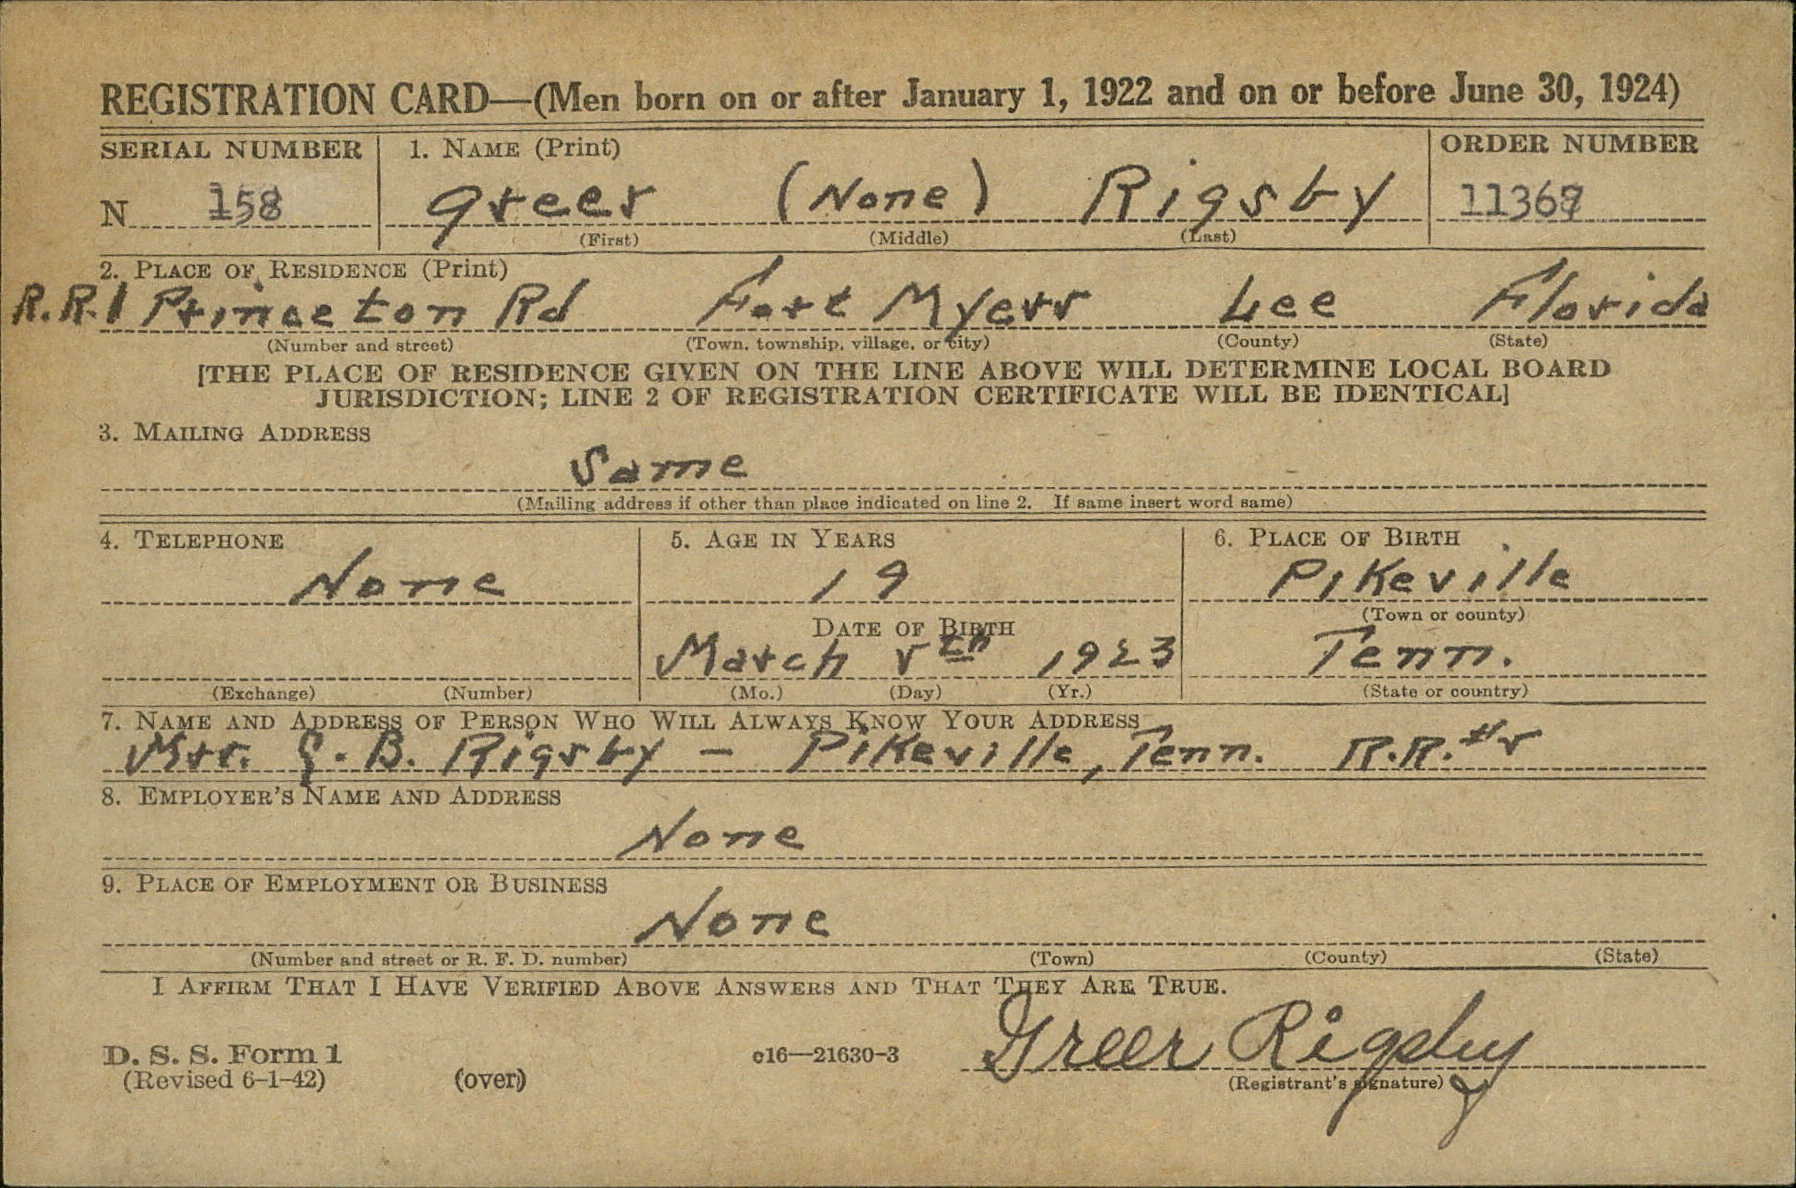 REGISTRATION CARD—(Men born on or after January 1, 1922 and on or before June 30, 1924)
SERIAL NUMBER 1. NAME (Print) ORDER NUMBER
N 158 Greer (None) Rigsby
(First) (Middle) (Last)
2. PLACE OF RESIDENCE (Print)
R.R.1 Princeton Rd Fort Myers Lee Florida
(Number and street) (Town, township, village, or city) (County) (State)
[THE PLACE OF RESIDENCE GIVEN ON THE LINE ABOVE WILL DETERMINE LOCAL BOARD
JURISDICTION; LINE 2 OF REGISTRATION CERTIFICATE WILL BE IDENTICAL]
3. MAILING ADDRESS
Same
(Mailing address if other than place indicated on line 2. If same insert word same)
4. TELEPHONE 5. AGE IN YEARS 6. PLACE OF BIRTH
None 19 Pikeville
(Town or county)
DATE OF BIRTH
March 5th 1923 Tenn.
(Exchange) (Number) (Mo.) (Day) (Yr.) (State or country)
7. NAME AND ADDRESS OF PERSON WHO WILL ALWAYS KNOW YOUR ADDRESS
Mrs. B. Rigsby – Pikeville, Tenn. R.R. #5
8. EMPLOYER'S NAME AND ADDRESS
None
9. PLACE OF EMPLOYMENT OR BUSINESS
None
(Number and street or R. F. D. number) (Town) (County) (State)
I AFFIRM THAT I HAVE VERIFIED ABOVE ANSWERS AND THAT THEY ARE TRUE.
D. S. S. Form 1
(Revised 6-1-42) (over) c16—21630-3 Greer Rigsby
(Registrant's signature)